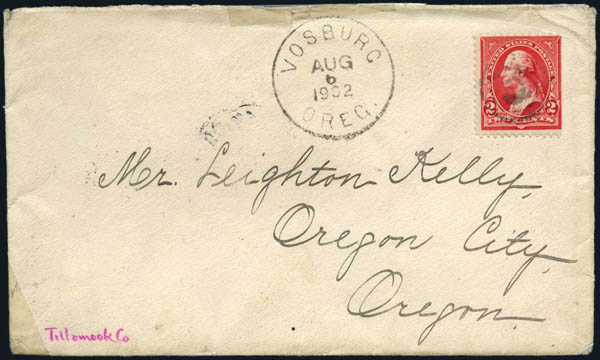 VOSBURG
AUG
6
1902
OREG.
UNITED STATES POSTAGE
2 2
TWO CENTS
Mr. Leighton Kelly,
Oregon City,
Oregon.
Tillamook Co